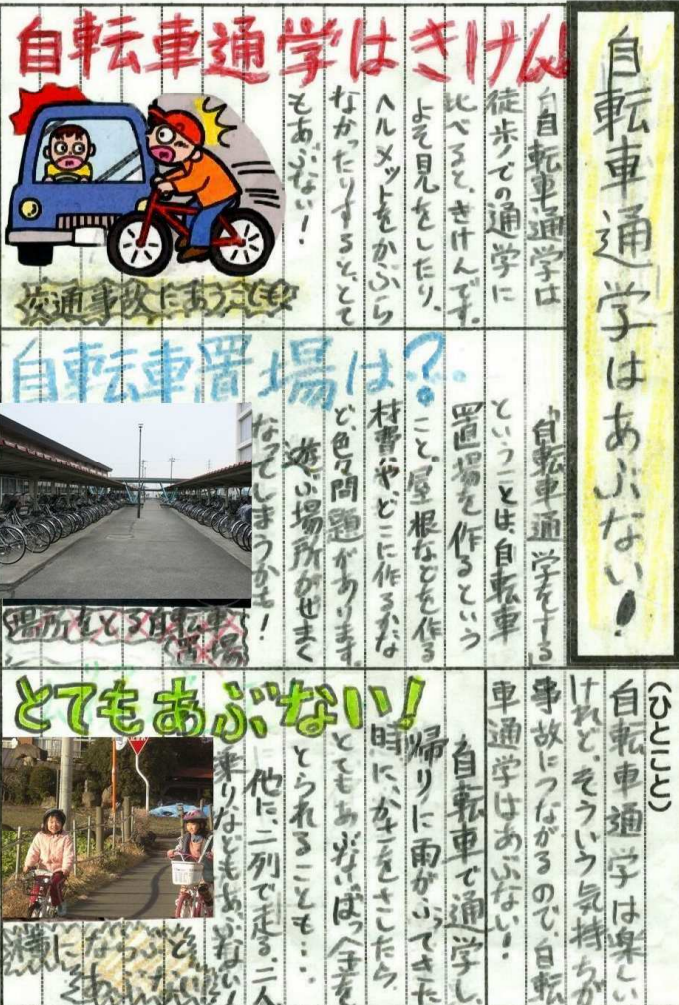 自転車通学はあぶない！
自転車通学はきけん!!
自転車通学は
徒歩での通学に
比べると、きけんです。
よそ見をしたり、
ヘルメットをかぶら
なかったりすると、とて
もあぶない！
交通事故にあうことも
自転車置場は？
「自転車通学をする」
ということは、自転車
置場を作るという
こと。屋根などを作る
材費や、どこに作るかな
ど、色々問題があります。
遊ぶ場所がせまく
なってしまうかも！
場所をとる自転車
置場
とてもあぶない！
自転車で通学し、
帰りに雨がふってきた
時に、かさをさしたら、
とてもあぶない。ばっ金を
とられることも…。
他に、二列で走る、二人
乗りなどもあぶない！
横にならぶと
あぶない!
(ひとこと)
自転車通学は楽しい
けれど、そういう気持ちが
事故につながるので、自転
車通学はあぶない！